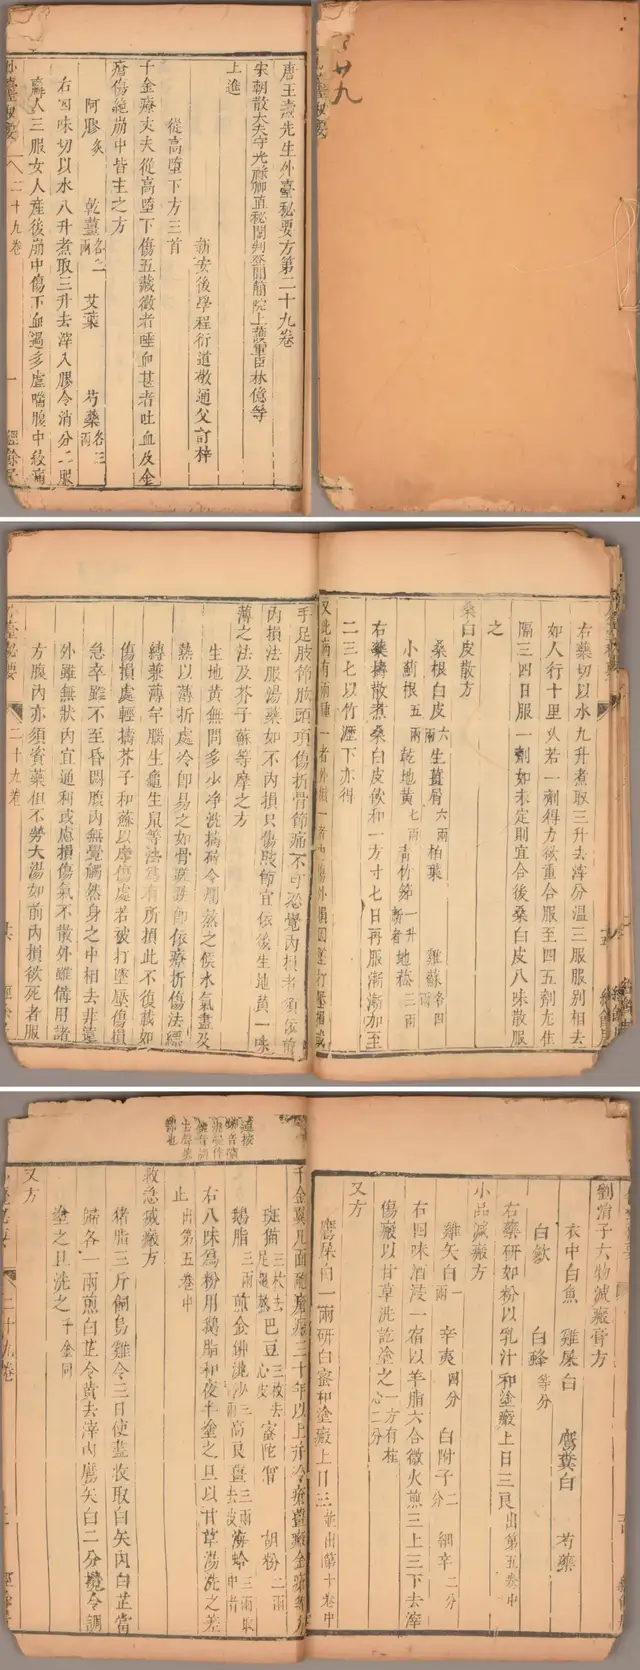 廿九
唐王燾先生外臺秘要方第二十九卷
宋朝散大夫守光祿卿直秘閣判登聞簡院上護軍臣林億等
上進
新安後學程衍道敬通父訂梓
從高墮下方三首
千金療丈夫從高墮下傷五藏微者唾血甚者吐血及金
瘡傷絕崩中皆主之方
阿膠炙 乾薑各二兩 艾葉 芍藥各三兩
右四味切以水八升煮取三升去滓入膠令消分二服
羸人三服女人產後崩中傷下血過多虛喘腹中絞痛
二十九卷
一
右藥切以水九升煮取三升去滓分溫三服服別相去
如人行十里久若一劑得力欲重合服至四五劑尤佳
隔三四日服一劑如未定則宜合後桑白皮八味散服
之
桑白皮散方
桑根白皮六兩 生薑屑六兩 柏葉 雞蘇各四兩
小薊根五兩 乾地黃七兩 青竹茹一升新者 地菘三兩
右藥擣散煮桑白皮飲和一方寸七日再服漸漸加至
二三七以竹瀝下亦得
手足肢節肱頭項傷折骨節痛不可恐覺內損者須依前
內損法服湯藥如不內損只傷肢節宜依後生地黃一味
薄之法及芥子蘇等摩之方
生地黃無問多少淨洗擣碎令爛蒸之候水氣盡及
熱以薄折處冷即易之如骨蒸
縛兼薄羊腦生龜生鼠等法為有所損此不復載如
傷損處輕擣芥子和蘇以摩傷處若被打壓傷損
急卒雖不至昏悶腹內無覺觸然身之中相去非遠
外雖無狀內宜通利或慮損傷氣不散外雖備用諸
方腹內亦須資藥但不勞大湯如前內損欲死者服
二十九卷
劉涓子六物滅瘢膏方
衣中白魚 雞屎白 鷹糞白 芍藥
白蘞 白蜂等分
右藥研如粉以乳汁和塗瘢上日三良出第五卷中
小品滅瘢方
雞矢白一兩 辛夷四分 白附子二分 細辛二分
右四味酒浸一宿以羊脂六合微火煎三上三下去滓
傷瘢以甘草洗訖塗之一方有桂心二分
又方
鷹屎白一兩研白蜜和塗瘢上日三並出第十卷中
斑猫三枚去足翅熬 巴豆三枚去心皮 蜜陀僧 胡粉二兩
右八味為粉用鵝脂和夜半塗之旦以甘草湯洗之差
止出第五卷中
救急滅瘢方
豬脂三斤飼烏雞令三日使盡後取白矢內白芷當
歸各一兩煎白芷令黃去滓內鷹矢白二分攪令調
塗之旦洗之千金同
又方
二十九卷